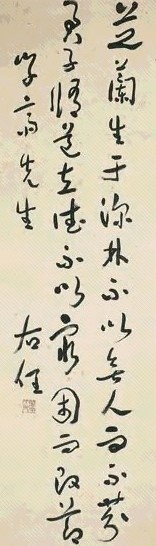 芝蘭生于深林不以無人而不芳
君子脩道立德不以窮困而改節
先生 右任